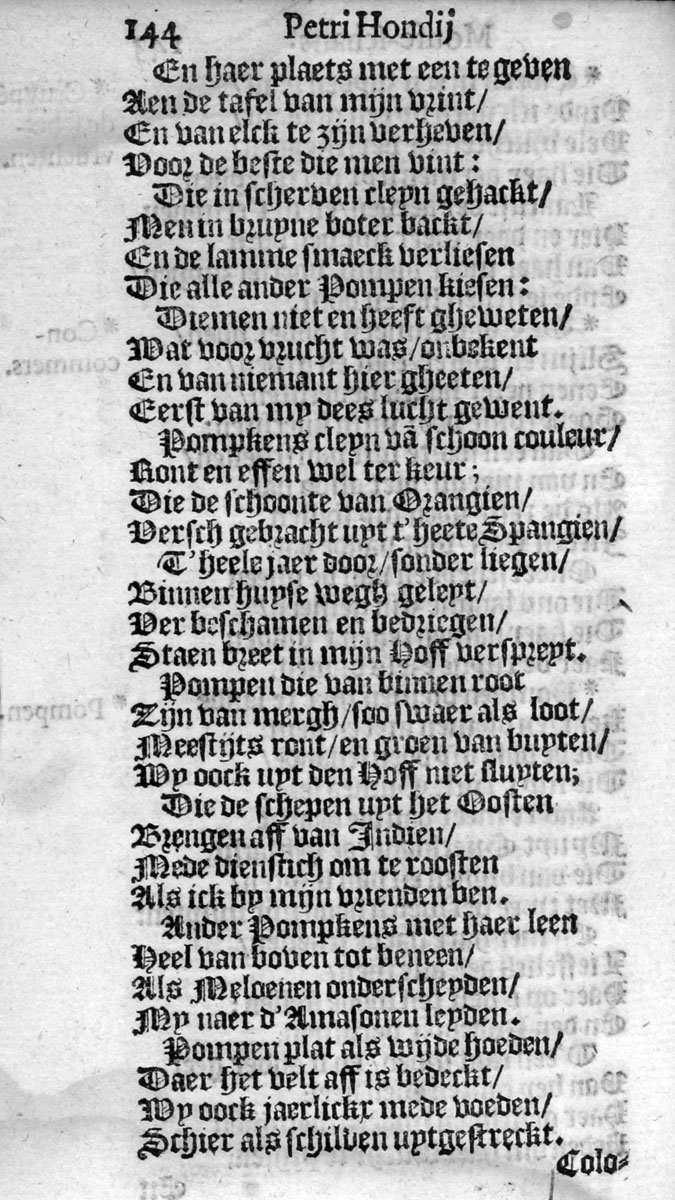 144 Petri Hondij
En haer plaets met een te geven
Aen de tafel van mijn vrint/
En van elck te zijn verheven/
Voor de beste die men vint:
Die in scherven cleyn gehackt/
Men in bruyne boter backt/
En de lamme smaeck verliesen
Die alle ander Pompen kiesen:
Diemen niet en heeft gheweten/
Wat voor vrucht was/onbekent
En van niemant hier gheeten/
Eerst van my dees lucht gewent.
Pompkens cleyn vã schoon couleur/
Ront en effen wel ter keur;
Die de schoonte van Orangien/
Versch gebracht uyt t'heete Spangien/
T'heele jaer door/sonder liegen/
Binnen huyse wegh geleyt/
Ver beschamen en bedriegen/
Staen breet in mijn Hoff verspreyt.
Pompen die van binnen root
Zijn van mergh/soo swaer als loot/
Meestijts ront/en groen van buyten/
Wy oock uyt den Hoff niet sluyten;
Die de schepen uyt het Oosten
Brengen aff van Indien/
Mede dienstich om te roosten
Als ick by mijn vrienden ben.
Ander Pompkens met haer leen
Heel van boven tot beneen/
Als Meloenen onderscheyden/
My naer d'Amasonen leyden.
Pompen plat als wijde hoeden/
Daer het velt aff is bedeckt/
Wy oock jaerlickx mede voeden/
Schier als schilven uytgestreckt.
Colo-